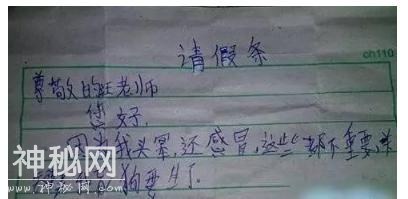 请假条
ch110
尊敬的旺老师
您好,
因为我头晕,还感冒,这些都不重要,关
狗要生了.
神秘网
WWW.神秘网.COM